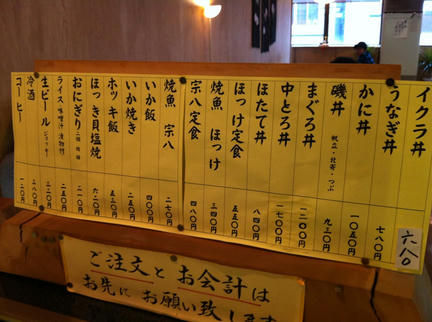 イクラ丼 六八〇
うなぎ丼 七八〇円
かに丼 一〇五〇円
磯丼 帆立・北寄・つぶ 九三〇円
まぐろ丼 一二〇〇円
中とろ丼 一七〇〇円
ほたて丼 八四〇円
ほっけ定食 五五〇円
焼魚 ほっけ 三四〇円
宗八定食 四八〇円
焼魚 宗八 二七〇円
いか飯 四〇〇円
いか焼き 二五〇円
ホッキ飯 五三〇円
ほっき貝塩焼 六二〇円
おにぎり 二一〇円
ライス 味噌汁 漬物付 二五〇円
生ビール ジョッキー
冷酒
コーヒー 一二〇円
ご注文と お会計は
お先に お願い致します